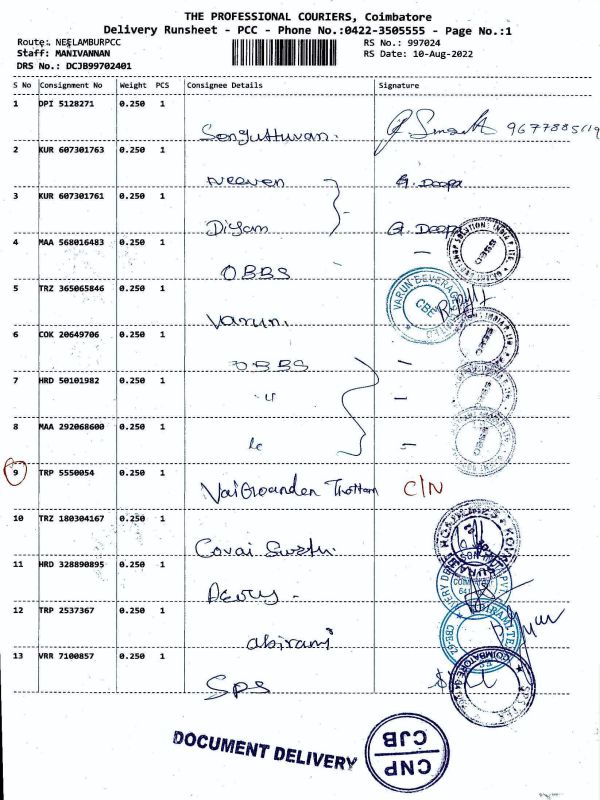 THE PROFESSIONAL COURIERS, Coimbatore
Delivery Runsheet - PCC - Phone No.:0422-3505555 - Page No.:1
Route: NEELAMBURPCC
RS No.: 997024
Staff: MANIVANNAN
RS Date: 10-Aug-2022
DRS No.: DCJB99702401
S No Consignment No Weight PCS Consignee Details Signature
1 DPI 5128271 0.250 1
Senguttuvan. 9677885119
2 KUR 607301763 0.250 1
Naveen G. Deepa
3 KUR 607301761 0.250 1
Diyam G. Deepa
4 MAA 568016483 0.250 1
OBBS -
5 TRZ 365065846 0.250 1
Varun.
VARUN BEVERAGES LIMITED
CBE
6 COK 20649706 0.250 1
OBBS -
7 HRD 50101982 0.250 1
u -
8 MAA 292068600 0.250 1
le -
9 TRP 5550054 0.250 1
Thottam C/N
10 TRZ 180304167 0.250 1
Covai
11 HRD 328890895 0.250 1
12 TRP 2537367 0.250 1
abirami
13 VRR 7100857 0.250 1
SPS
DOCUMENT DELIVERY
CNP
CJB